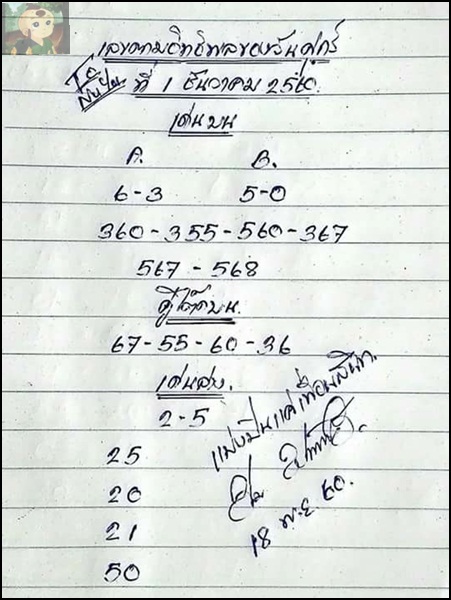 เลขตามอิทธิพลของวันศุกร์
ที่ 1 ธันวาคม 2560.
เด่นบน
A. B.
6-3 5-0
360-355-560-367
567-568
คู่โต๊ดบน.
67-55-60-36
เด่นล่าง.
2-5
25
20
21
50
แบ่งปันแค่เพื่อนสนิท.
18 พ.ย 60.